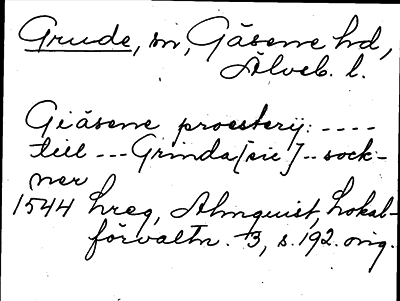 Grude, sn, Gäsene hd,
Älvsb. l.
Giäsene proestery: ----
till --- Grinda [sic] -- sock-
ner
1544 hreg, Almquist, Lokal-
förvaltn. 3, s. 192. orig.